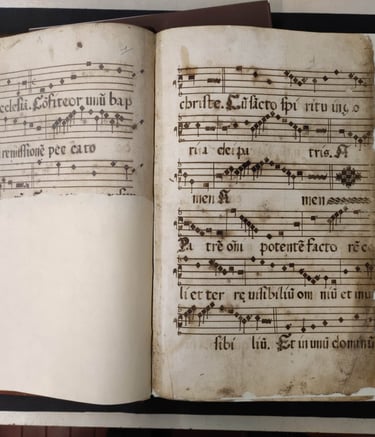 cclesia. Cōfiteor unū bap
remissionē pec cato
christe. Cū sācto spi ritu in glo
ria dei pa tris. A
men A men
Pa trē oīm potentē facto rē ce
li et ter re visibiliū om niū et invi
sibi liū. Et in unū dominū